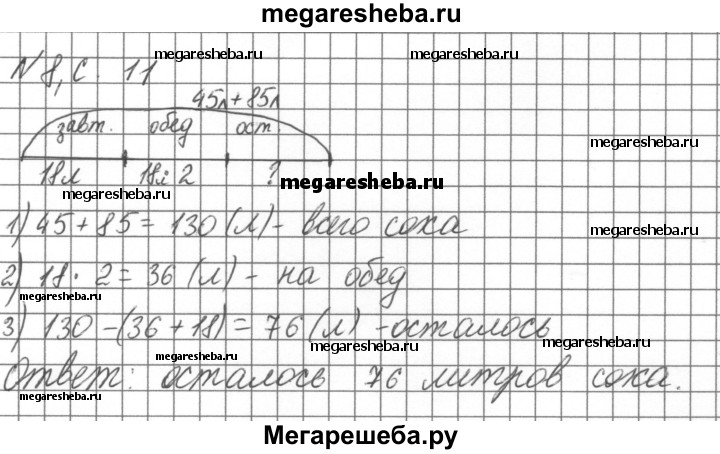 megaresheba.ru
N 8, с. 11
megaresheba.ru megaresheba.ru
45л + 85л
завт. обед ост.
megaresheba.ru
18л 18л·2 ?
megaresheba.ru
megaresheba.ru
1) 45 + 85 = 130 (л) - всего сока
megaresheba.ru
2) 18 · 2 = 36 (л) - на обед
megaresheba.ru
3) 130 - (36 + 18) = 76 (л) - осталось
megaresheba.ru megaresheba.ru megaresheba.ru
Ответ: осталось 76 литров сока.
megaresheba.ru
Мегарешеба.ру